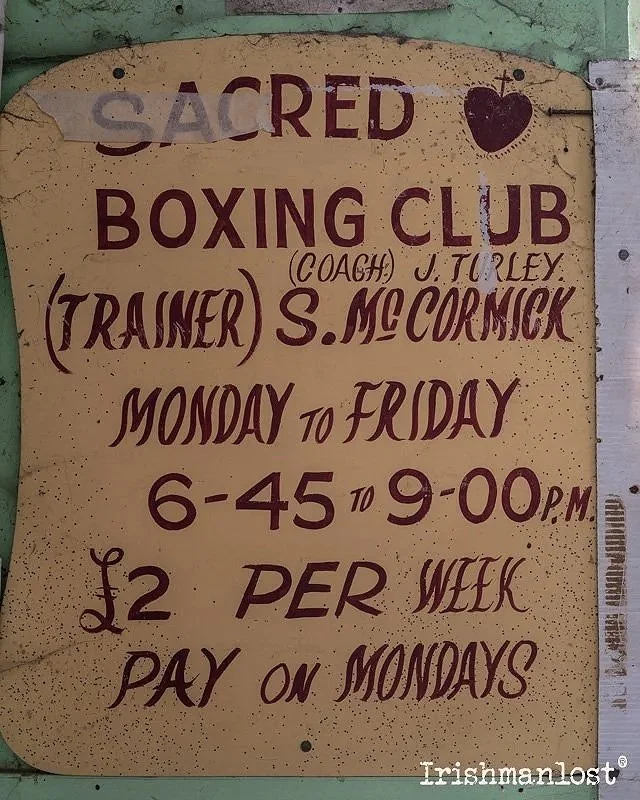 SACRED
BOXING CLUB
(COACH) J. TURLEY.
(TRAINER) S. Mc CORMICK
MONDAY TO FRIDAY
6-45 TO 9-00 P.M.
£2 PER WEEK
PAY ON MONDAYS
Irishmanlost®